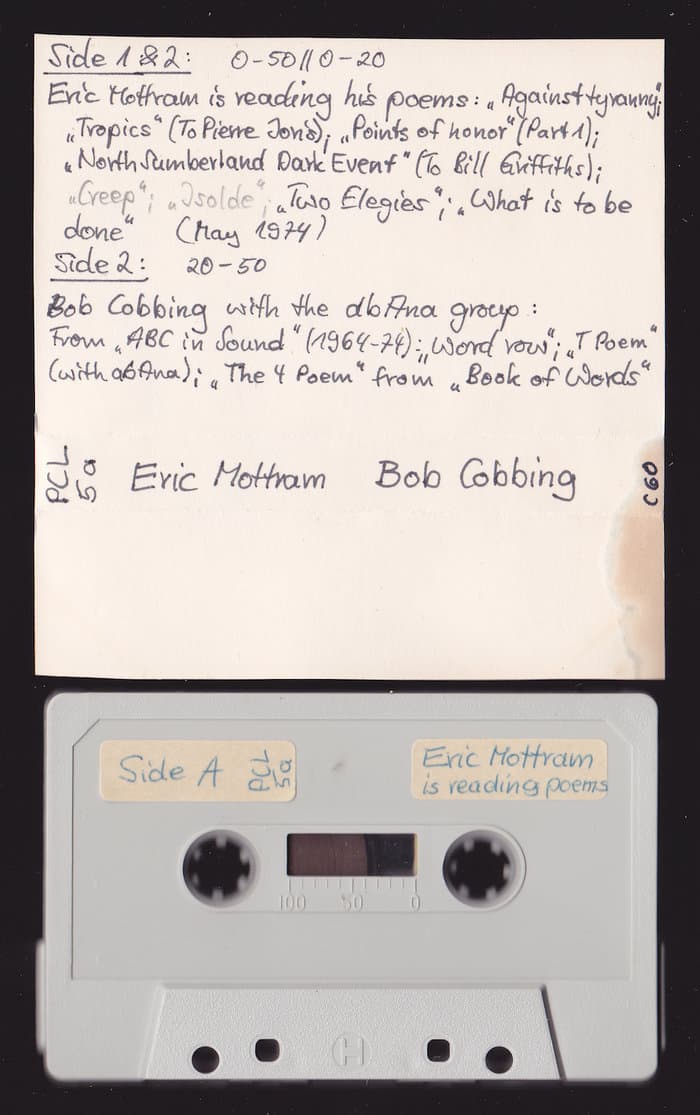 Side 1 & 2: 0-50//0-20
Eric Mottram is reading his poems: „Against tyranny“;
„Tropics“ (To Pierre Joris); „Points of honor“ (Part 1);
„North Sumberland Dark Event“ (To Bill Griffiths);
„Creep“; „Isolde“; „Two Elegies“; „What is to be
done“ (May 1974)
Side 2: 20-50
Bob Cobbing with the abAna group:
From „ABC in Sound“ (1964-74): „Word row“; „T Poem“
(with abAna); „The 4 Poem“ from „Book of Words“
PCL
5a
Eric Mottram Bob Cobbing
C60
Side A
PCL
5a
Eric Mottram
is reading poems
100 50 0
H